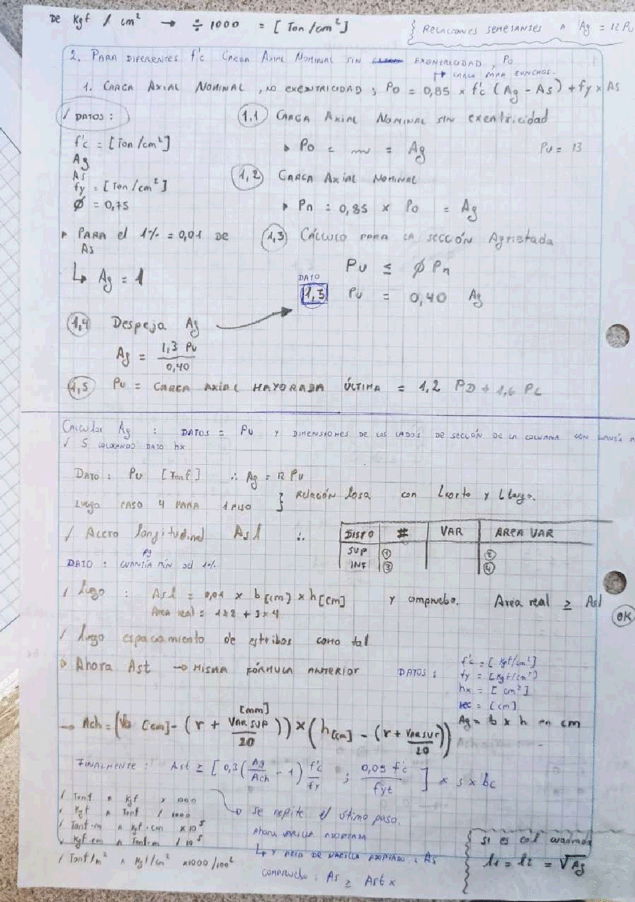 DE Kgf / cm² → ÷ 1000 = [Ton/cm²]
RELACIONES SEMEJANTES A Ag = 12 Pu
2. PARA DIFERENTES f'c CARGA AXIAL NOMINAL SIN EXENTRICIDAD, Po
1. CARGA AXIAL NOMINAL, NO EXENTRICIDAD; Po = 0,85 × f'c (Ag - As) + fy × As
DATOS:
f'c = [Ton/cm²]
Ag
As
fy = [Ton/cm²]
Ø = 0,75
PARA el 1% = 0,01 DE As
↳ Ag = 1
1.1 CARGA AXIAL NOMINAL SIN exentricidad
Po = = Ag
Pu = 13
1,2 CARGA AXIAL NOMINAL
Pn = 0,85 × Po = Ag
1,3 CÁLCULO PARA LA SECCIÓN Agrietada
Pu ≤ Ø Pn
DATO
1,3 Pu = 0,40 Ag
1,4 Despeja Ag
Ag = 1,3 Pu / 0,40
1,5 Pu = CARGA AXIAL MAYORADA ÚLTIMA = 1,2 PD + 1,6 PL
Calcular Ag : DATOS = Pu Y DIMENSIONES DE LOS LADOS DE SECCIÓN DE LA COLUMNA CON
DATO hx
DATO: Pu [Tonf] ∴ Ag = 12 Pu
Luego PASO 4 PARA 1 PISO } RELACIÓN losa con Lcorto y Llargo.
/ Acero longitudinal Asl ∴
DISPO # VAR AREA VAR
SUP ① ②
INF ③ ④
DATO: CUANTÍA MÍN del 1%
/ Luego : Asl = 0,01 × b[cm] × h[cm] y compruebo. Area real ≥ Asl
Area real = 1×2 + 3×4
OK
/ luego espaciamiento de estribos como tal
Ahora Ast → MISMA FÓRMULA ANTERIOR DATOS:
f'c = [Kgf/cm²]
fy = [Kgf/cm²]
hx = [cm²]
rec = [cm]
Ag = b × h en cm
→ Ach = (b [cm] - (r + VAR SUP [mm] / 20)) × (h[cm] - (r + VAR SUP / 20))
FINALMENTE: Ast ≥ [0,3 (Ag/Ach - 1) f'c/fy ; 0,09 f'c/fyt] × s × bc
/ Tonf a Kgf × 1000
/ Kgf a Tonf / 1000
/ Tonf-m a Kgf-cm ×10⁵
/ Kgf-cm a Tonf-m / 10⁵
/ Tonf/m² a Kgf/cm² ×1000/100²
→ se repite el último paso.
Ahora varilla adoptada
↳ y Area de varilla adoptado: As
compruebo: As ≥ Ast x
si es col cuadrada
l1 = l2 = √Ag